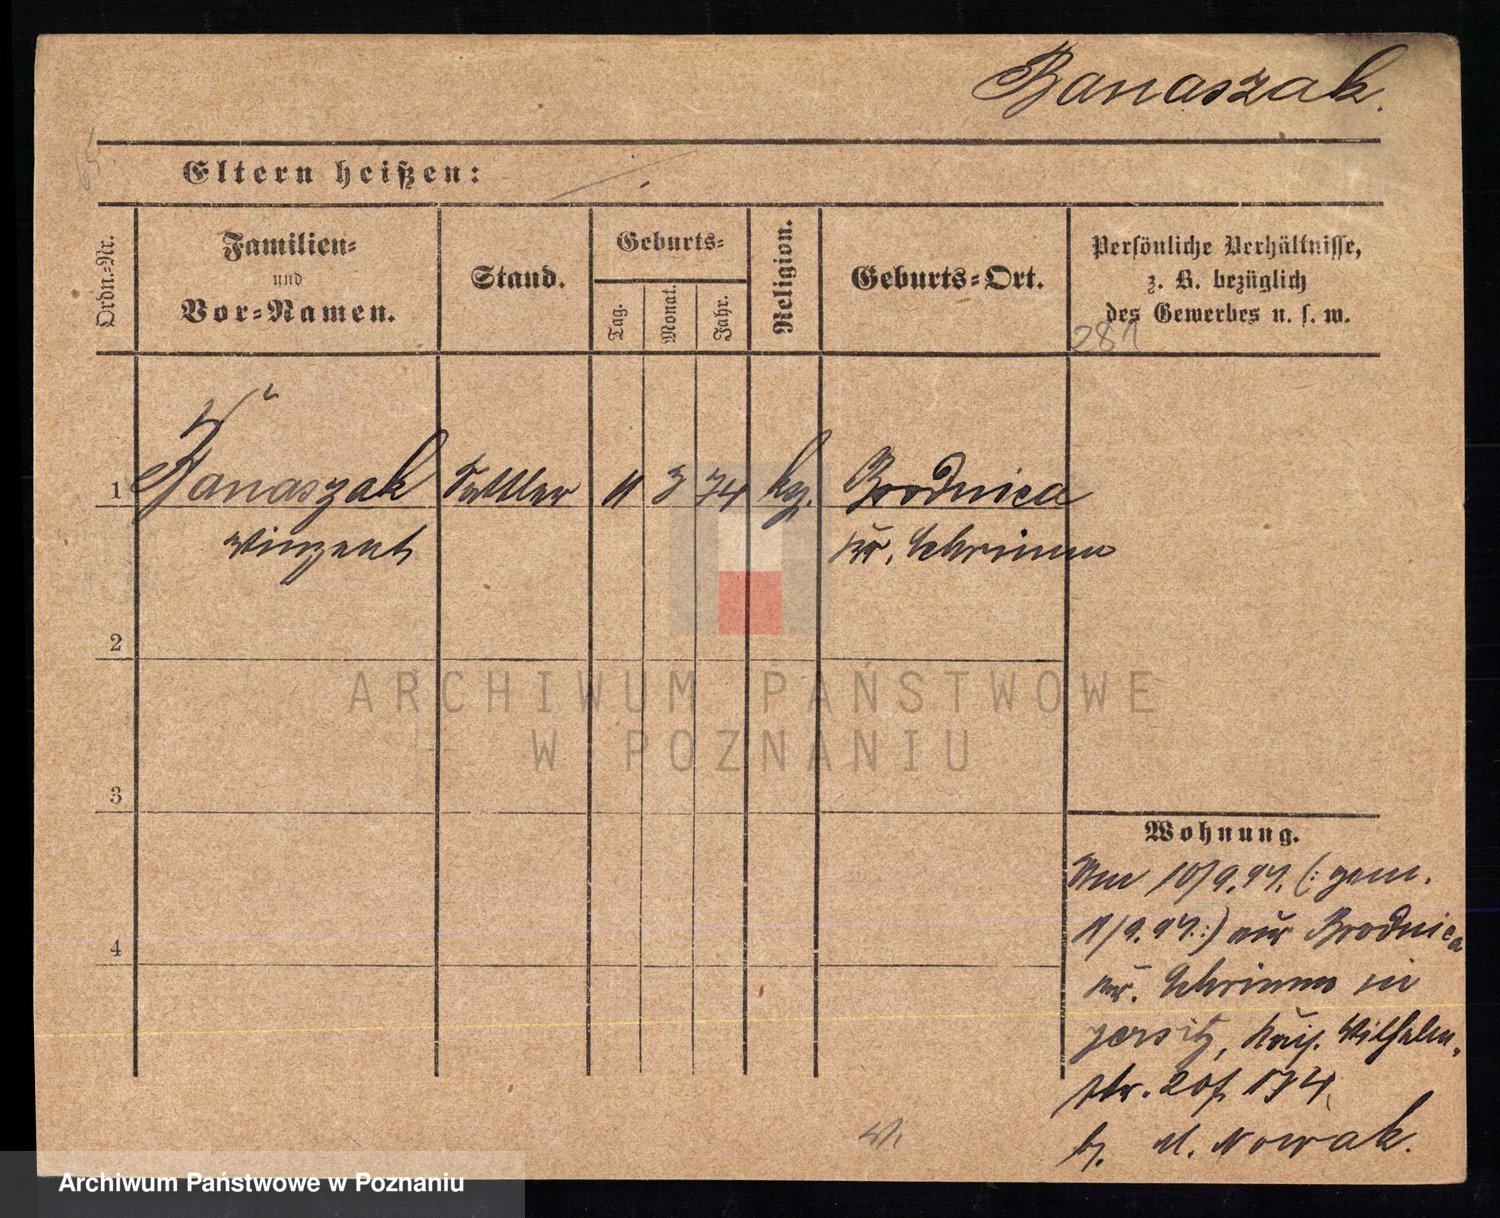 Banaszak.
Eltern heißen:
Ordn.-Nr.
Familien-
und
Vor-Namen.
Stand.
Geburts-
Tag.
Monat.
Jahr.
Religion.
Geburts-Ort.
Persönliche Verhältnisse,
z. B. bezüglich
des Gewerbes u. s. w.
281
1 Banaszak Sattler 11 3 74 kg. Brodnica
Vinzent Kr. Schrimm
2
3
4
Wohnung.
Am 10/9.97. (: gem.
11/9.97 :) aus Brodnica
Kr. Schrimm in
Jersitz, Kais. Wilhelm-
str. 174
b. M. Nowak.
ARCHIWUM PAŃSTWOWE
W POZNANIU
Archiwum Państwowe w Poznaniu